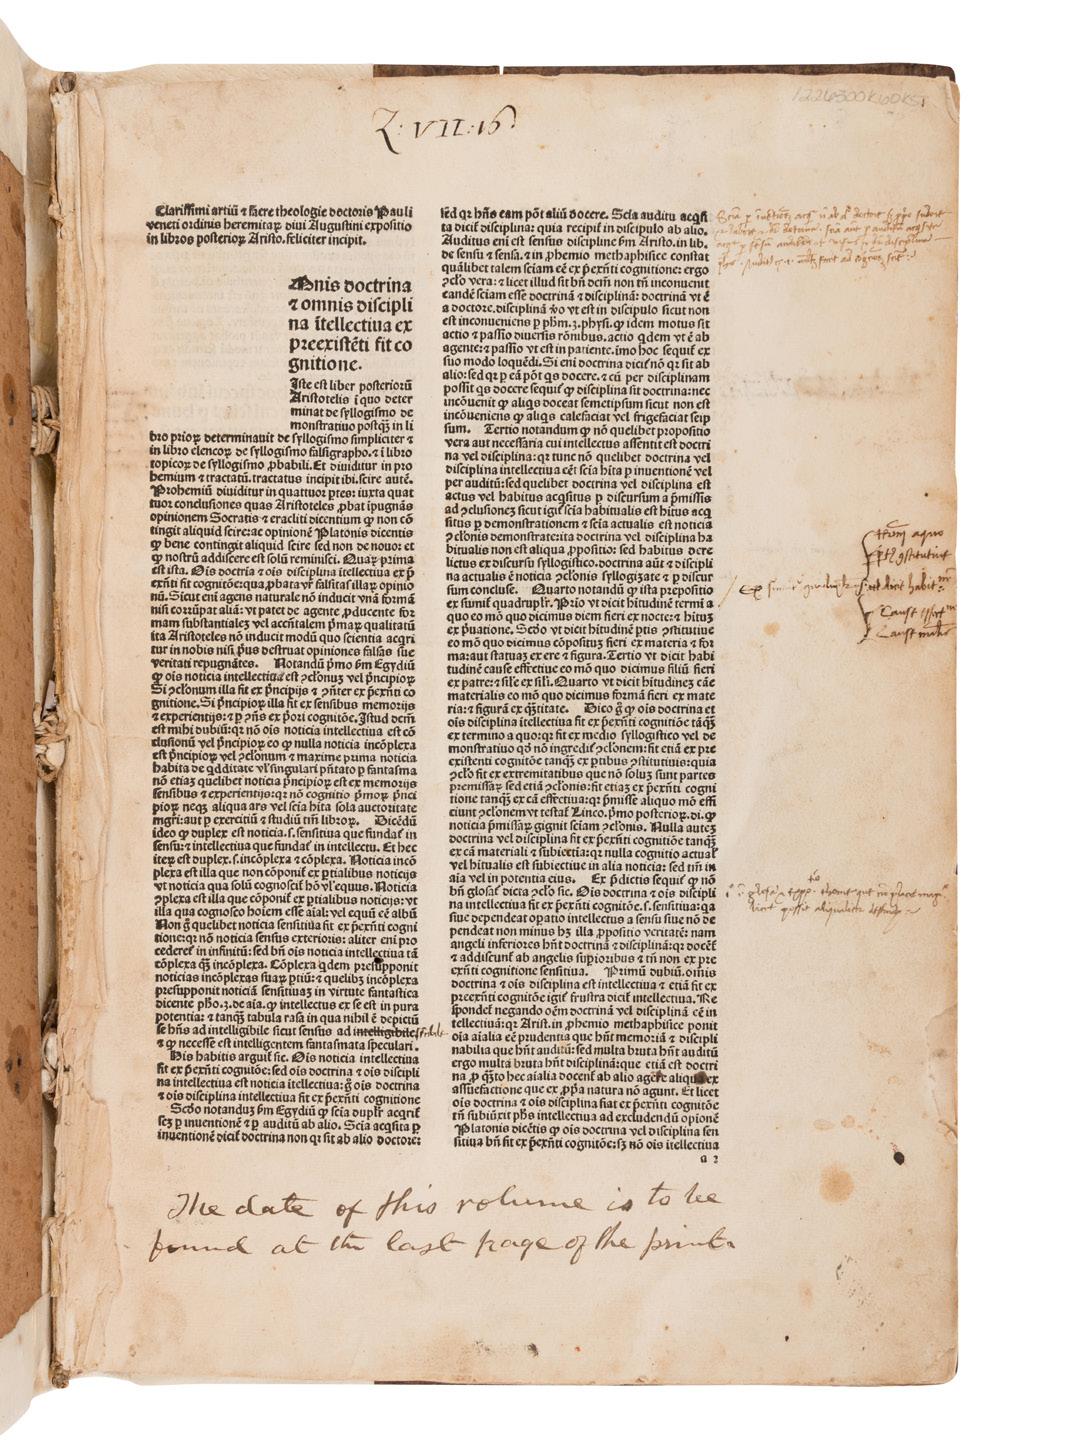 Z: VII: 16
Clarissimi artiũ ⁊ sacre theologie doctoris Pauli
veneti ordinis heremitaꝝ diui Augustini expositio
in libros posterioꝝ Aristo. feliciter incipit.
Mnis doctrina
⁊ omnis discipli
na ĩtellectiua ex
preexistẽti fit co
gnitione.
Iste est liber posteriorũ
Aristotelis ĩ quo deter
minat de syllogismo de
monstratiuo postq̃ in li
bro prioꝝ determinauit de syllogismo simpliciter ⁊
in libro elencoꝝ de syllogismo falsigrapho. ⁊ ĩ libro
topicoꝝ de syllogismo ꝓbabili. Et diuiditur in pro
hemium ⁊ tractatũ. tractatus incipit ibi. scire autẽ.
Prohemiũ diuiditur in quattuor ꝑtes: iuxta quat
tuor conclusiones quas Aristoteles ꝓbat ipugnãs
opinionem Socratis ⁊ eracliti dicentium ꝙ non cõ
tingit aliquid scire: ac opinionẽ Platonis dicentis
ꝙ bene contingit aliquid scire sed non de nouo: et
ꝙ nostrũ addiscere est solũ reminisci. Quaꝝ prima
est ista. Ois doctria ⁊ ois disciplina ĩtellectiua ex p̃
exñti fit cognitõe: qua ꝓbata vr̃ falsitas illaꝝ opinio
nũ. Sicut eni agens naturale nõ inducit vnã formã
nisi corrũpat aliã: vt patet de agente ꝓducente for
mam substantialeꝫ vel accñtalem p̃maꝝ qualitatũ
ita Aristoteles nõ inducit modũ quo scientia acq̃ri
tur in nobis nisi p̃us destruat opiniones falsas sue
veritati repugnãtes. Notandũ p̃mo ẜm Egydiũ
ꝙ ois noticia intellectiua est ꝯclonuꝫ vel p̃ncipioꝝ
Si ꝯclonum illa fit ex p̃ncipijs ⁊ ꝯñter ex p̃exñti co
gnitione. Si p̃ncipioꝝ illa fit ex sensibus memorijs
⁊ experientijs: ⁊ ꝑ ꝯñs ex p̃ori cognitõe. Istud dem̃
est mihi dubiũ: qꝛ nõ ois noticia intellectiua est cõ
clusionũ vel p̃ncipioꝝ eo ꝙ nulla noticia incõplexa
est p̃ncipioꝝ vel ꝯclonum ⁊ maxime prima noticia
habita de q̃dditate vl̓ singulari p̃ntato ꝑ fantasma
nõ etiaꝫ quelibet noticia p̃ncipioꝝ est ex memorijs
sensibus ⁊ experientijs: qꝛ nõ cognitio p̃moꝝ p̃nci
pioꝝ neqꝫ aliqua ars vel scia hita sola auctoritate
mgr̃i: aut ꝑ exercitiũ ⁊ studiũ tm̃ libroꝝ. Dicẽdũ
ideo ꝙ duplex est noticia. s. sensitiua que fundat̃ in
sensu: ⁊ intellectiua que fundat̃ in intellectu. Et hec
iteꝝ est duplex. s. incõplexa ⁊ cõplexa. Noticia incõ
plexa est illa que non cõponit̃ ex ꝑtialibus noticijs
vt noticia qua solũ cognoscit̃ hõ vl̓ equus. Noticia
ꝯplexa est illa que cõponit̃ ex ꝑtialibus noticijs: vt
illa qua cognosco hoiem esse aial: vel equũ eẽ albũ
Non g̃ quelibet noticia sensitiua fit ex p̃exñti cogni
tione: qꝛ nõ noticia sensus exterioris: aliter eni pro
cederet̃ in infinitũ: sed bñ ois noticia intellectiua tã
cõplexa q̃ꝫ incõplexa. Cõplexa q̃dem presupponit
noticias incõplexas suaꝝ ꝑtiũ: ⁊ quelibꝫ incõplexa
presupponit noticiã sensitiuaꝫ in virtute fantastica
dicente pho. 3. de aĩa. ꝙ intellectus ex se est in pura
potentia: ⁊ tanqꝫ tabula rasa in qua nihil ẽ depictũ
se hñs ad intelligibile sicut sensus ad intelligibile
⁊ ꝙ necesse est intelligentem fantasmata speculari.
His habitis arguit̃ sic. Ois noticia intellectiua
fit ex p̃exñti cognitõe: sed ois doctrina ⁊ ois discipli
na intellectiua est noticia ĩtellectiua: g̃ ois doctrina
⁊ ois disciplina intellectiua fit ex p̃exñti cognitione
Scdo notanduꝫ ẜm Egydiũ ꝙ scia duplr̃ acqrit̃
scꝫ ꝑ inuentionẽ ⁊ ꝑ auditũ ab alio. Scia acq̃sita ꝑ
inuentionẽ dicit̃ doctrina non qꝛ sit ab alio doctore:
sed qꝛ hñs eam põt aliũ docere. Scia auditu acq̃si
ta dicit̃ disciplina: quia recipit̃ in discipulo ab alio.
Auditus eni est sensus discipline ẜm Aristo. in lib.
de sensu ⁊ sensa. ⁊ in ꝓhemio methaphisice constat
quãlibet talem sciam eẽ ex p̃exñti cognitione: ergo
ꝯclo vera: ⁊ licet illud sit bñ dem̃ non tñ inconuenit
eandẽ sciam esse doctrinã ⁊ disciplinã: doctrinã vt ẽ
a doctore. disciplinã v̾o vt est in discipulo sicut non
est inconueniens ꝑ phm̃. 3. physi. ꝙ idem motus sit
actio ⁊ passio diuersis rõnibus. actio q̃dem vt ẽ ab
agente: ⁊ passio vt est in patiente. imo hoc sequit̃ ex
suo modo loquẽdi. Si eni doctrina dicit̃ nõ qꝛ sit ab
alio: sed qꝛ ꝑ eã põt q̃s docere. ⁊ cũ per disciplinam
possit q̃s docere sequit̃ ꝙ disciplina sit doctrina: nec
incõuenit ꝙ aliq̃s doceat semetipsum sicut non est
incõueniens ꝙ aliq̃s calefaciat vel frigefaciat seip
sum. Tertio notandum ꝙ nõ quelibet propositio
vera aut necessaria cui intellectus assentit est doctri
na vel disciplina: qꝛ tunc nõ quelibet doctrina vel
disciplina intellectiua eẽt scia hita ꝑ inuentionẽ vel
per auditũ: sed quelibet doctrina vel disciplina est
actus vel habitus acq̃situs ꝑ discursum a p̃missis
ad ꝯclusionẽꝫ sicut igit̃ scia habitualis est hitus acq̃
situs ꝑ demonstrationem ⁊ scia actualis est noticia
ꝯclonis demonstrate: ita doctrina vel disciplina ha
bitualis non est aliqua ꝓpositio: sed habitus dere
lictus ex discursu syllogistico. doctrina aũt ⁊ discipli
na actualis ẽ noticia ꝯclonis syllogizate ⁊ ꝑ discur
sum concluse. Quarto notandũ ꝙ ista prepositio
ex sumit̃ quadruplr̃. Prĩo vt dicit hĩtudinẽ termi a
quo eo mõ quo dicimus diem fieri ex nocte: ⁊ hĩtus
ex p̃uatione. Scdo vt dicit hĩtudinẽ ptis ꝯstitutiue
eo mõ quo dicimus cõpositũꝫ fieri ex materia ⁊ for
ma: aut statuaꝫ ex ere ⁊ figura. Tertio vt dicit habi
tudinẽ cause effectiue eo mõ quo dicimus filiũ fieri
ex patre: ⁊ sil̓e ex sil̓i. Quarto vt dicit hĩtudineꝫ cãe
materialis eo mõ quo dicimus formã fieri ex mate
ria: ⁊ figurã ex q̃titate. Dico g̃ ꝙ ois doctrina et
ois disciplina ĩtellectiua fit ex p̃exñti cognitiõe tãqꝫ
ex termino a quo: qꝛ fit ex medio syllogistico vel de
monstratiuo qd̃ nõ ingredit̃ ꝯclonem: fit etiã ex pre
existenti cognitõe tanqꝫ ex ꝑtibus ꝯstitutiuis: quia
ꝯclo fit ex extremitatibus que nõ soluꝫ sunt partes
premissaꝝ sed etiã ꝯclonis: fit etiaꝫ ex p̃exñti cogni
tione tanqꝫ ex cã effectiua: qꝛ p̃misse aliquo mõ effi
ciunt ꝯclonem vt testat̃ Linco. p̃mo posterioꝝ. di. ꝙ
noticia p̃missaꝝ gignit sciam ꝯclonis. Nulla auteꝫ
doctrina vel disciplina fit ex p̃exñti cognitõe tanqꝫ
ex cã materiali ⁊ subiectia: qꝛ nulla cognitio actual̓
vel hĩtualis est subiectiue in alia noticia: sed tm̃ in
aĩa vel in potentia eius. Ex p̃dictis sequit̃ ꝙ nõ
bñ glosat̃ dicta ꝯclo sic. Ois doctrina ⁊ ois discipli
na intellectiua fit ex p̃exñti cognitõe. s. sensitiua: q̃a
siue dependeat opatio intellectus a sensu siue nõ de
pendeat non minus hꝫ illa ꝓpositio veritatẽ: nam
angeli inferiores hñt doctrinã ⁊ disciplinã: qꝛ docẽt̃
⁊ addiscunt̃ ab angelis suꝑioribus ⁊ tñ non ex pre
exñti cognitione sensitiua. Primũ dubiũ. omnis
doctrina ⁊ ois disciplina est intellectiua ⁊ etiã fit ex
preexñti cognitõe igit̃ frustra dicit̃ intellectiua. Re
spondet̃ negando oẽm doctrinã vel disciplinã eẽ in
tellectiuã: qꝛ Arist. in ꝓhemio methaphisice ponit
oia aialia eẽ prudentia que hñt memoriã ⁊ discipli
nabilia que hñt auditũ: sed multa bruta hñt auditũ
ergo multa bruta hñt disciplinã: que etiã est doctri
na ꝓ q̃to hec aialia docent̃ ab alio agere aliqua ex
assuefactione que ex ꝓpria natura nõ agunt. Et licet
ois doctrina ⁊ ois disciplina fiat ex p̃exñti cognitõe
tñ subiũxit phs̃ intellectiua ad excludendũ opionẽ
Platonis dicẽtis ꝙ ois doctrina vel disciplina sen
sitiua bñ fit ex p̃exñti cognitõe: sꝫ nõ ois itellectiua
a 2
The date of this volume is to be
found at the last page of the print.